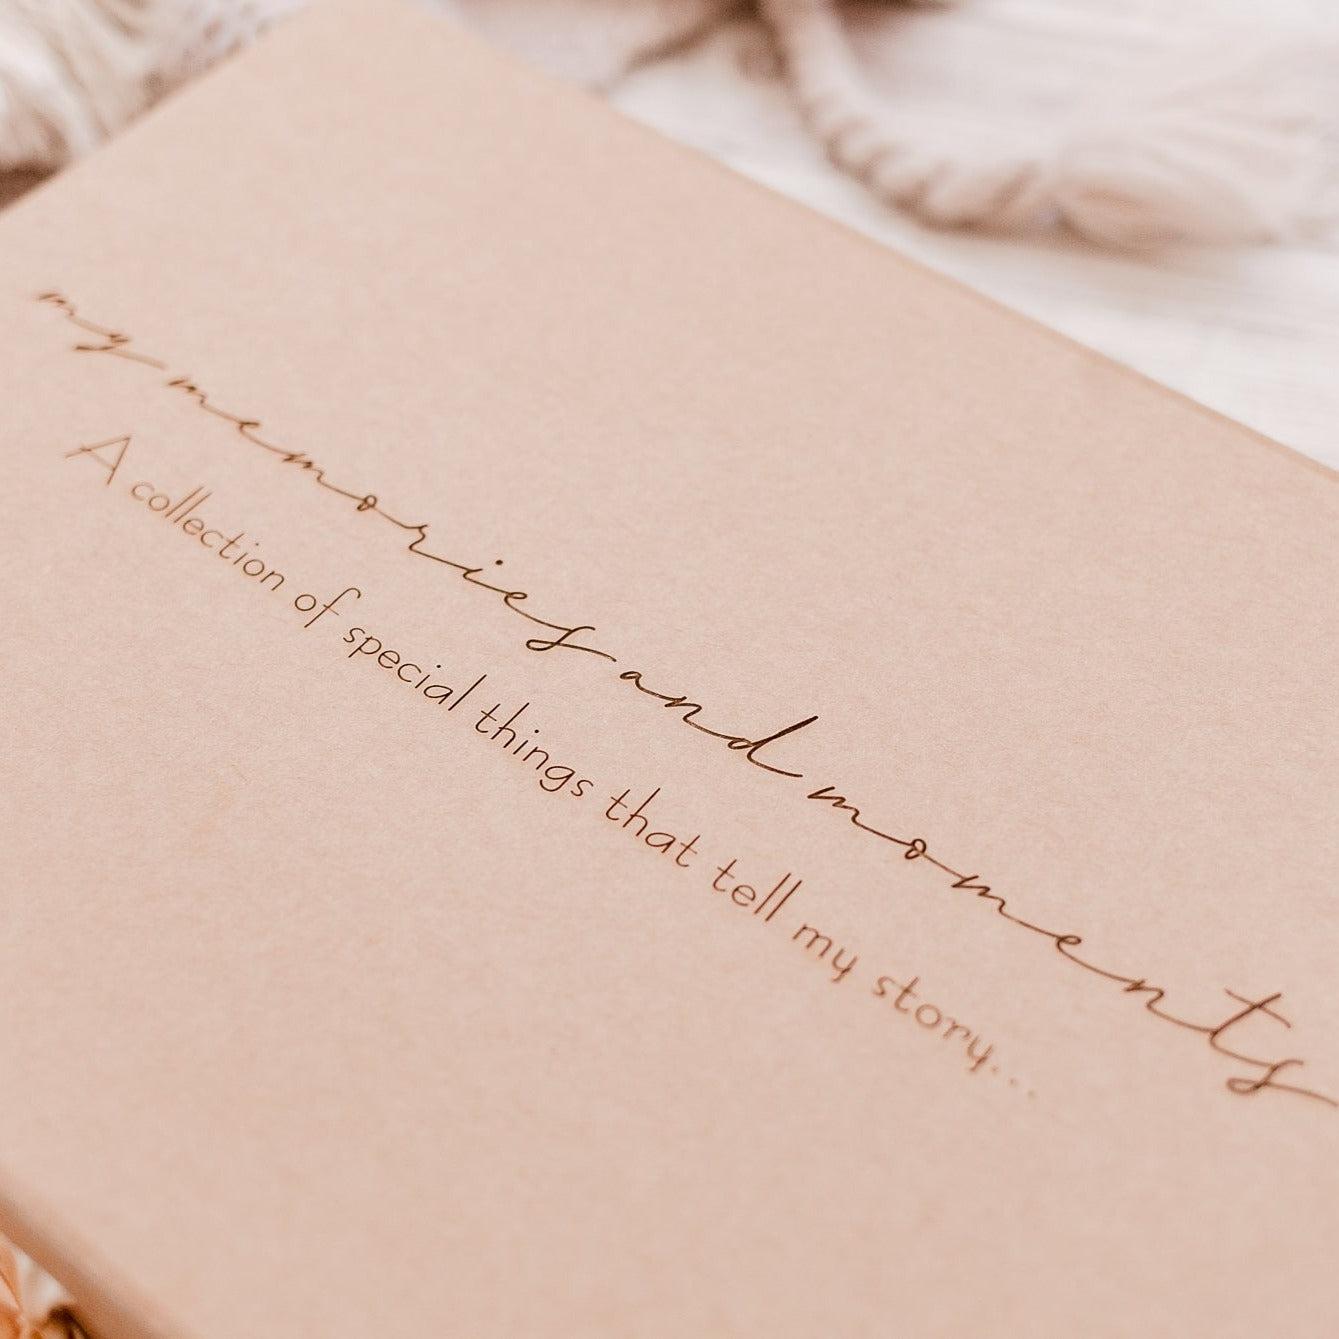 my memories and moments
A collection of special things that tell my story...